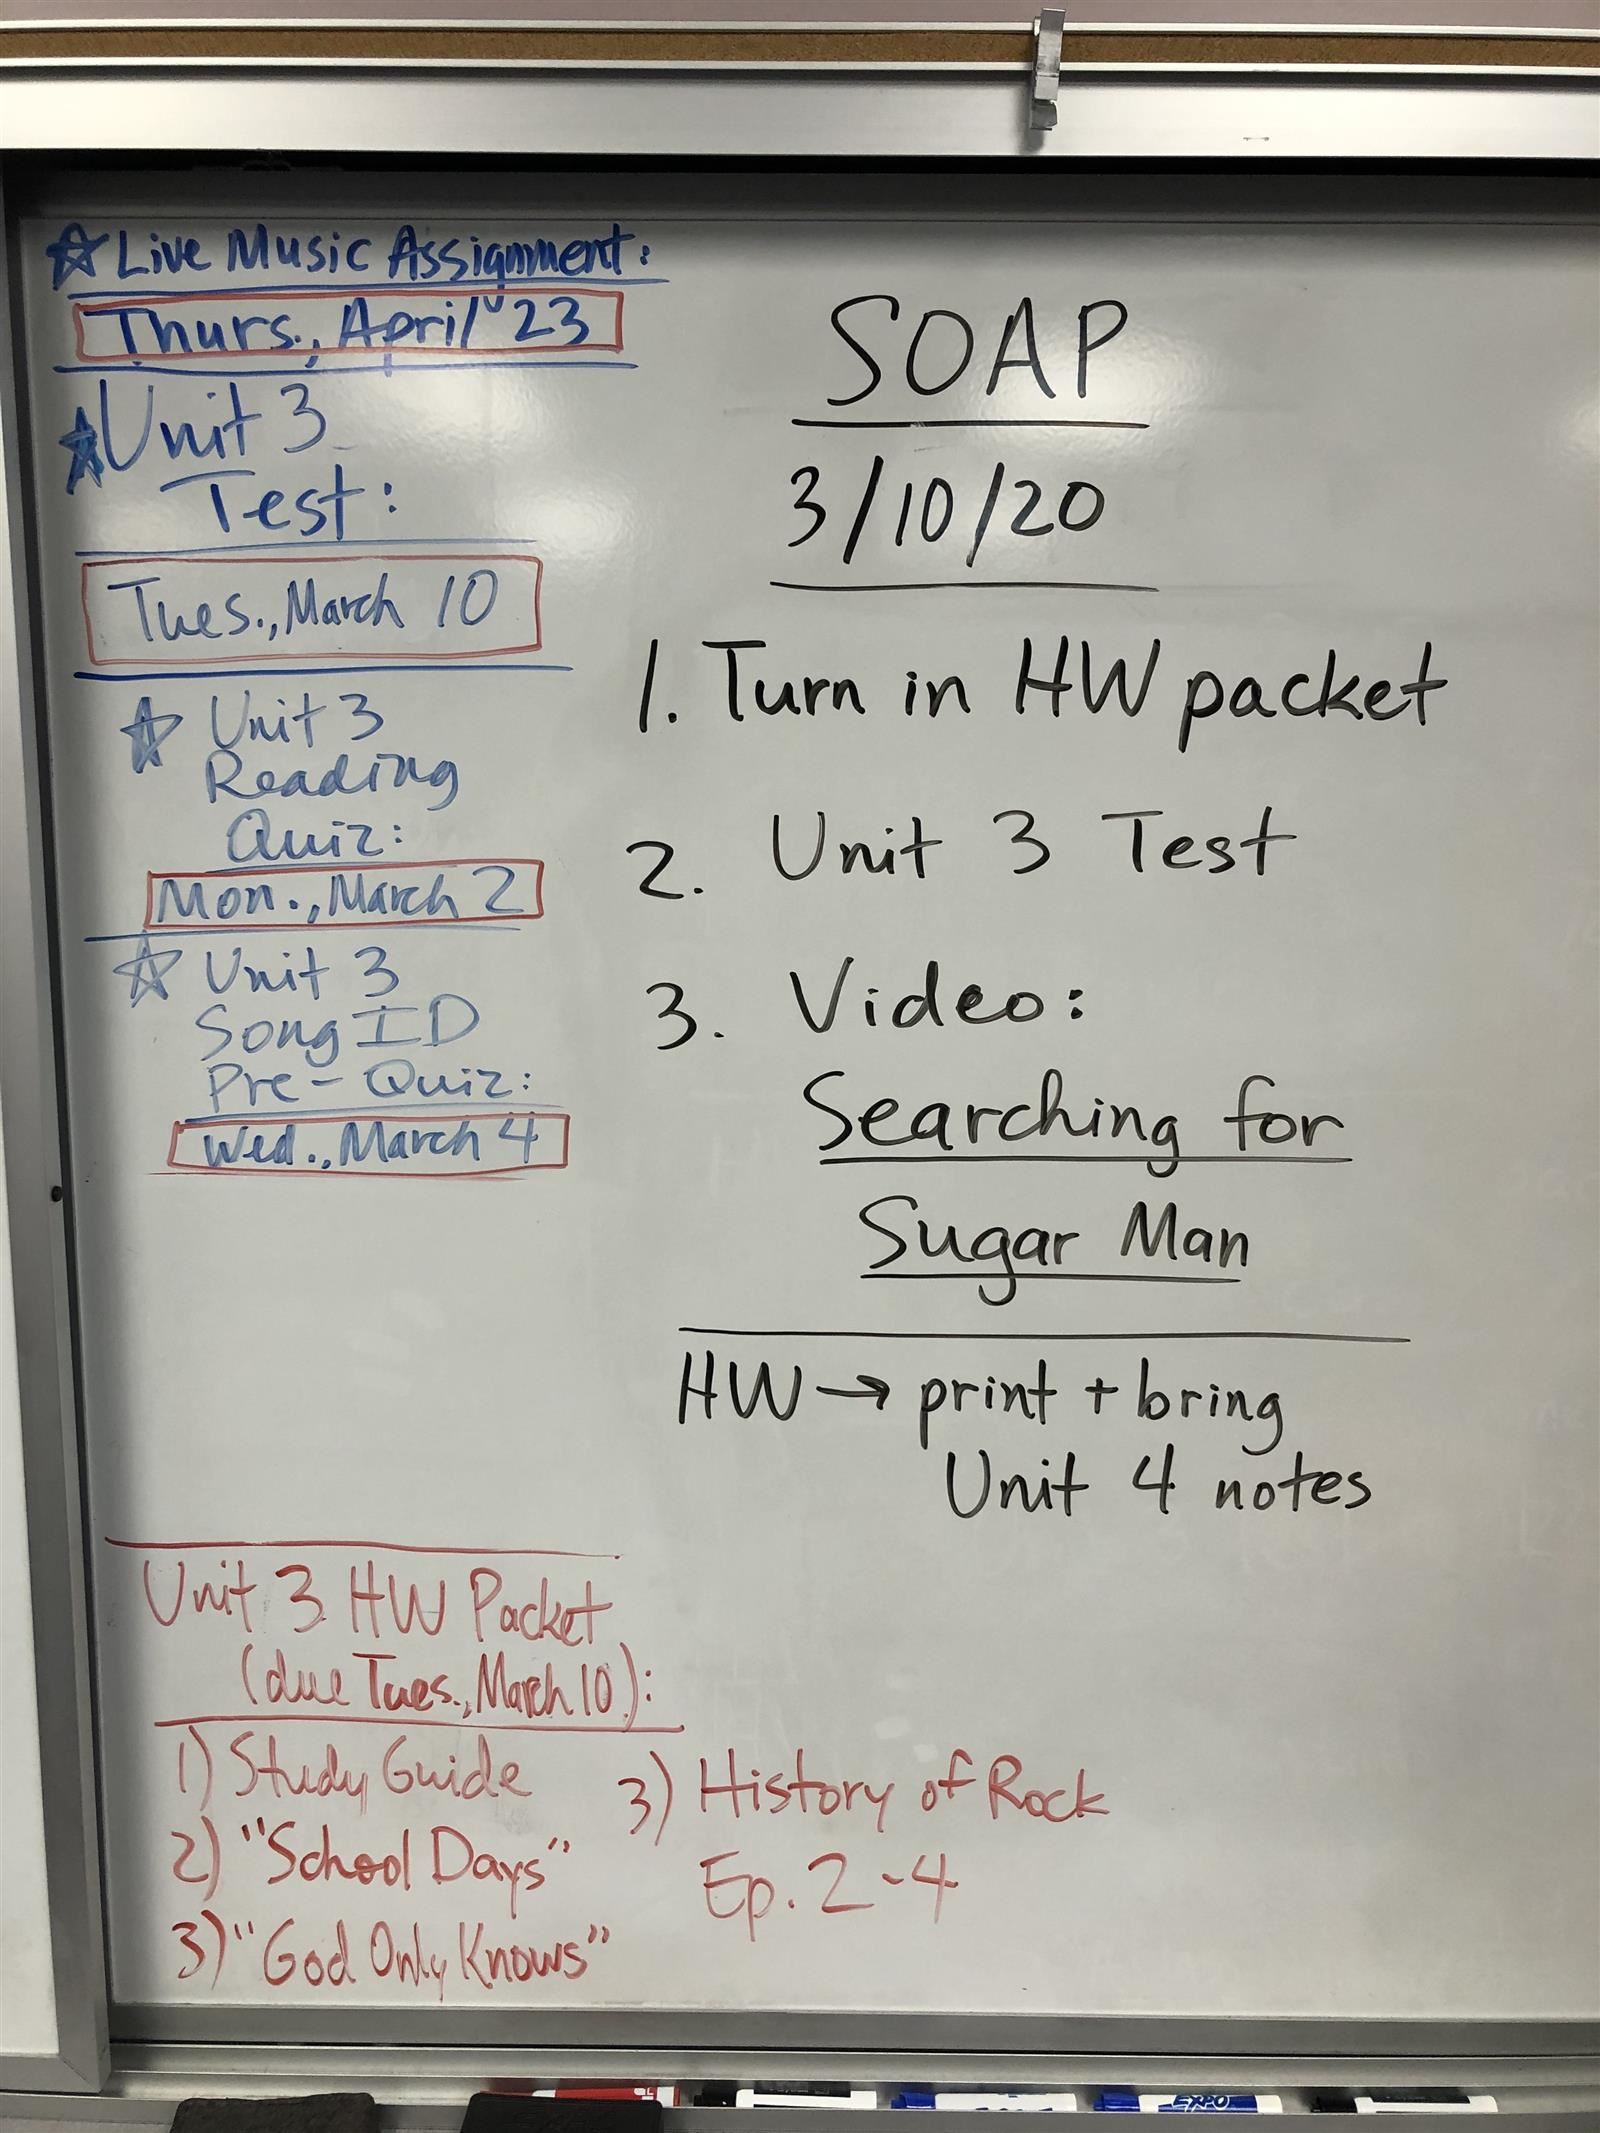 ☆ Live Music Assignment:
Thurs., April 23
★ Unit 3
Test:
Tues., March 10
☆ Unit 3
Reading
Quiz:
Mon., March 2
☆ Unit 3
Song ID
Pre-Quiz:
Wed., March 4
SOAP
3/10/20
1. Turn in HW packet
2. Unit 3 Test
3. Video:
Searching for
Sugar Man
HW → print + bring
Unit 4 notes
Unit 3 HW Packet
(due Tues., March 10):
1) Study Guide
2) "School Days"
3) "God Only Knows"
3) History of Rock
Ep. 2-4
EXPO